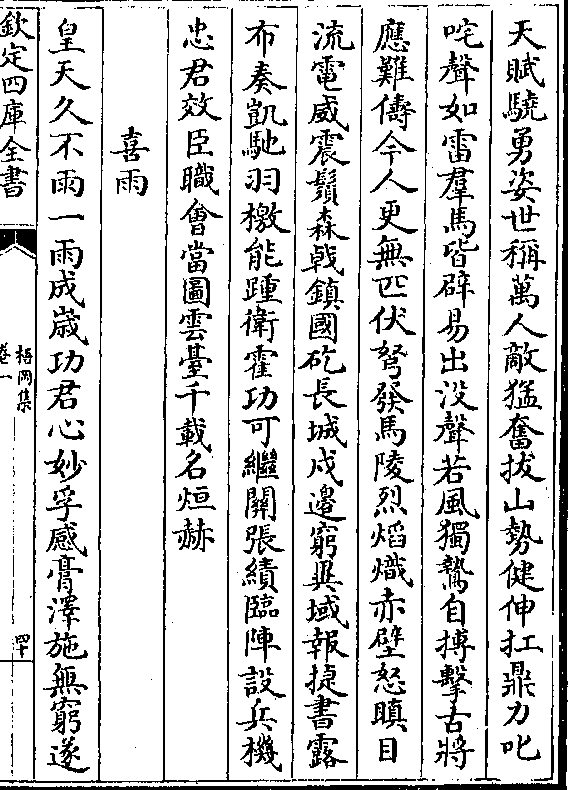 天賦驍勇姿世稱萬人敵猛奮拔山勢健伸扛鼎力叱
咤聲如雷羣馬皆辟易出没聲若風獨鷙自搏擊古將
應難儔今人更無匹伏弩發馬陵烈熖熾赤壁怒瞋目
流電威震鬚森㦸鎮國矻長城戍邊窮異域報捷書露
布奏凱馳羽檄能踵衛霍功可繼關張績臨陣設兵機
忠君效臣職會當圖雲臺千載名烜赫
喜雨
皇天久不雨一雨成歲功君心妙孚感膏澤施無窮遂
欽定四庫全書
梧岡集
卷一